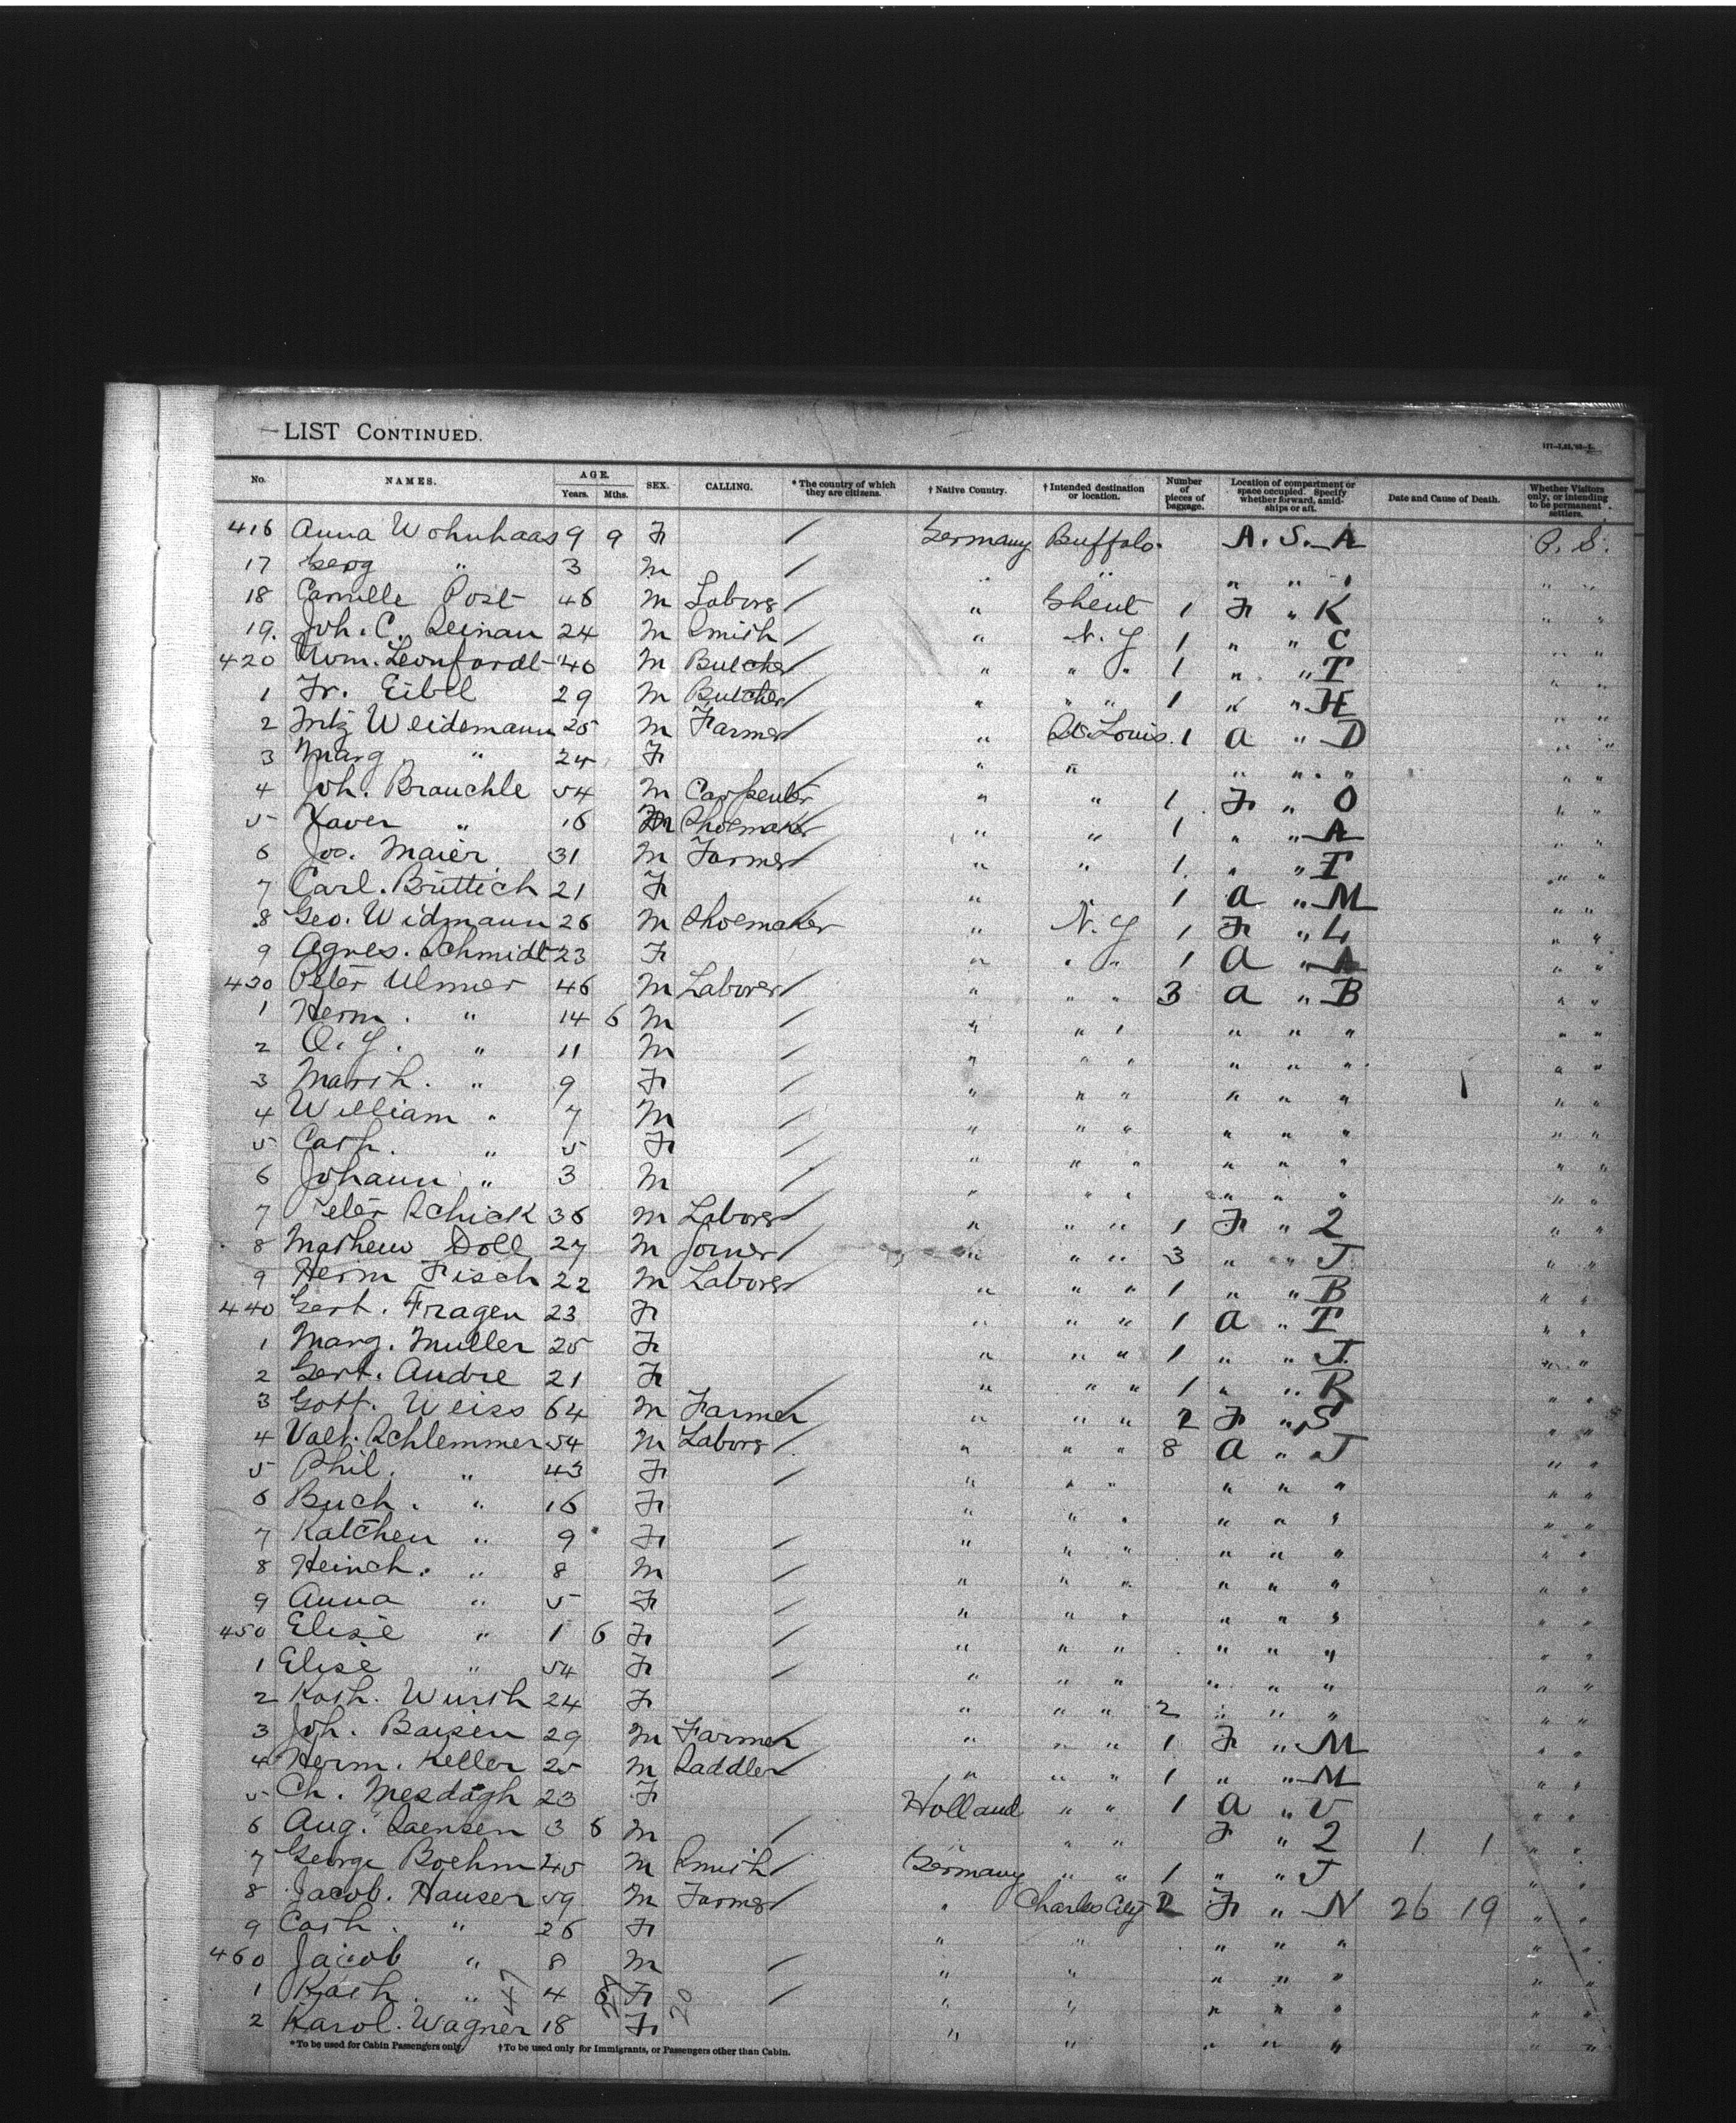 LIST CONTINUED.
No. NAMES. AGE. Years. Mths. SEX. CALLING. * The country of which they are citizens. † Native Country. † Intended destination or location. Number of pieces of baggage. Location of compartment or space occupied. Specify whether forward, amid-ships or aft. Date and Cause of Death. Whether Visitors only, or intending to be permanent settlers.
416 Anna Wohnhaas 9 9 F / Germany Buffalo. A. S. A P. S.
17 Georg " 3 M / " " " " " " "
18 Camille Post 46 M Labors / " Ghent 1 F " K " "
19. Joh. C. Reinau 24 M Smith / " N. Y 1 " " C " "
420 Wm. Leonfordt 40 M Butcher / " " " 1 " " T " "
1 Fr. Eibel 29 M Butcher / " " " 1 " " H " "
2 Fritz Weidemann 25 M Farmer / " St. Louis. 1 a " D " "
3 Marg " 24 F " " " " " " "
4 Joh. Brauchle 54 M Carpenter / " " 1 F " O " "
5 Xaver " 16 M Shoemaker / " " 1 " " A " "
6 Jos. Maier 31 M Farmer / " " 1 " " T " "
7 Carl. Büttich 21 F " " 1 a " M " "
8 Geo. Widmann 26 M Shoemaker / " N. Y 1 F " L " "
9 Agnes. Schmidt 23 F " " " 1 a " A " "
430 Peter Ulmer 46 M Laborer / " " " 3 a " B " "
1 Herm. " 14 6 M / " " " " " " " "
2 O. Y. " 11 M / " " " " " " " "
3 Marth. " 9 F / " " " " " " " "
4 William " 7 M / " " " " " " " "
5 Cath. " 5 F / " " " " " " " "
6 Johann " 3 M / " " " " " " " "
7 Peter Schick 36 M Labors / " " " 1 F " 2 " "
8 Mathew Doll 27 M Joiner / " " " 3 " " J " "
9 Herm Fisch 22 M Laborer / " " " 1 " " B " "
440 Gert. Fragen 23 F " " " 1 a " T " "
1 Marg. Muller 25 F " " " 1 " " J. " "
2 Gert. Andre 21 F " " " 1 " " R " "
3 Gotf. Weiss 64 M Farmer / " " " 2 F " S " "
4 Valt. Schlemmer 54 M Labors / " " " 8 a " J " "
5 Phil. " 43 F / " " " " " " " "
6 Buch. " 16 F " " " " " " " "
7 Katchen " 9 F / " " " " " " " "
8 Heinch. " 8 M / " " " " " " " "
9 Anna " 5 F / " " " " " " " "
450 Elise " 1 6 F / " " " " " " " "
1 Elise " 54 F / " " " " " " " "
2 Kath. Wursth 24 F " " " 2 " " " " "
3 Joh. Baisen 29 M Farmer / " " " 1 F " M " "
4 Herm. Keller 25 M Saddler / " " " 1 " " M " "
5 Ch. Mesdagh 23 F Holland " " 1 a " V " "
6 Aug. Saensen 3 6 M / " " F " 2 1 1 " "
7 George Boehm 45 M Smith / Germany " " 1 " " J " "
8 Jacob. Hauser 59 M Farmer / " Charles City 2 F " N 26 19 " "
9 Cath. " 26 F " " " " " " "
460 Jacob " 8 M / " " " " " " "
1 Kath. " 4 6 F / " " " " " " "
2 Karol. Wagner 18 F " " " " " " "
47 20
* To be used for Cabin Passengers only. † To be used only for Immigrants, or Passengers other than Cabin.